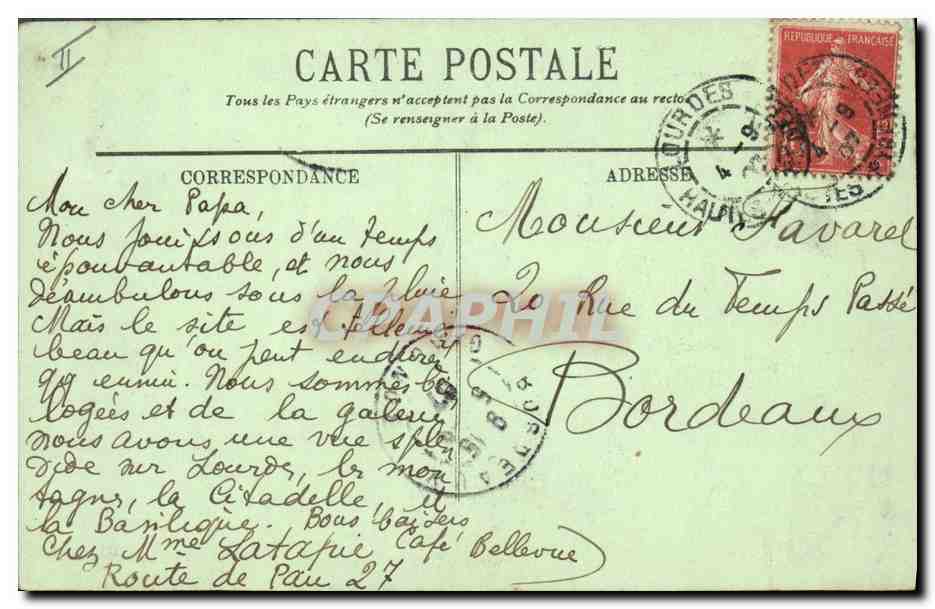 II
CARTE POSTALE
Tous les Pays étrangers n'acceptent pas la Correspondance au recto
(Se renseigner à la Poste).
REPUBLIQUE FRANÇAISE
LOURDES
4 - 9
HAUTES
CORRESPONDANCE
Mon cher Papa,
Nous jouissons d'un temps
épouvantable, et nous
déambulons sous la pluie
Mais le site est tellement
beau qu'on peut endurer
qq ennui. Nous sommes b
logées et de la galerie
nous avons une vue splen
dide sur Lourdes, les mon
tagnes, la Citadelle, et
la Basilique. Bons baisers
Chez Mme Latapie Café Bellevue
Route de Pau 27
ADRESSE
Monsieur Favarel
20 Rue du Temps Passé
Bordeaux
BORDEAUX
CPAPHIL